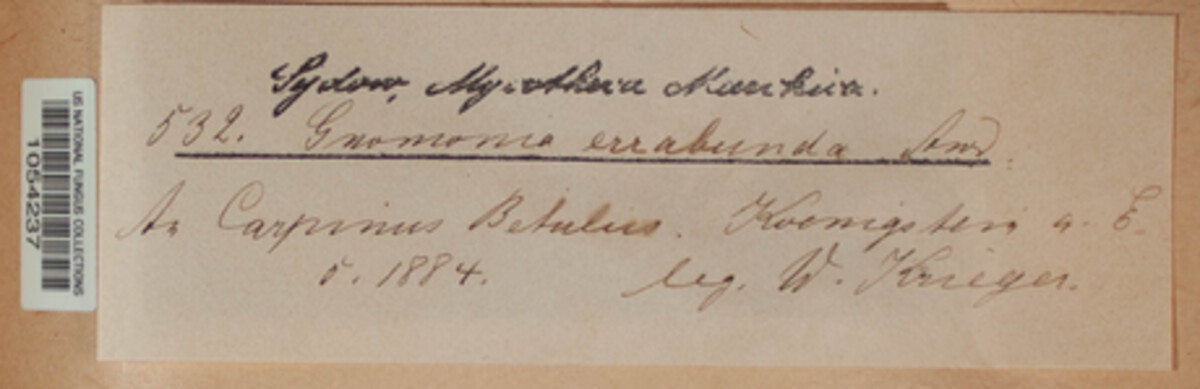 US NATIONAL FUNGUS COLLECTIONS
1054237
Sydow, Mycotheca Marchica.
532. Gnomonia errabunda Awd.
An Carpinus Betulus. Koenigstein a. E.
5. 1884. leg. W. Krieger.